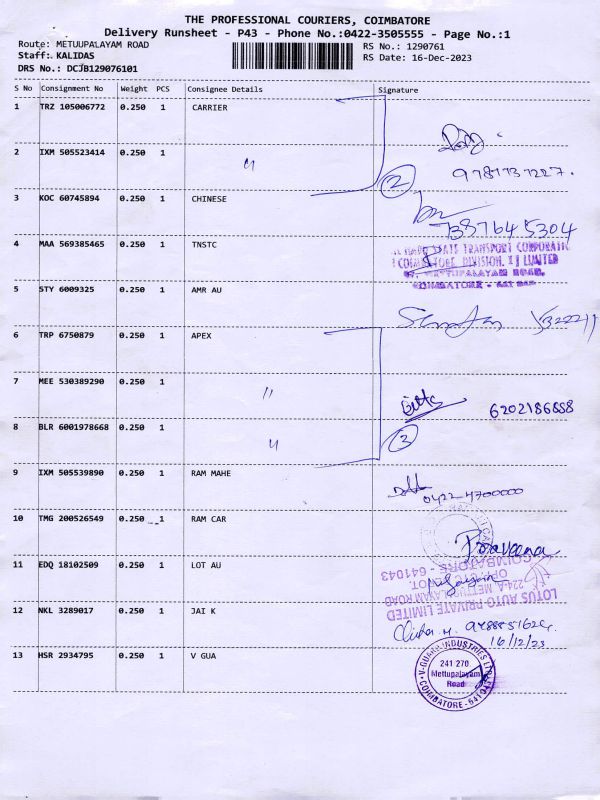 THE PROFESSIONAL COURIERS, COIMBATORE
Delivery Runsheet - P43 - Phone No.:0422-3505555 - Page No.:1
Route: METUUPALAYAM ROAD
RS No.: 1290761
Staff: KALIDAS
RS Date: 16-Dec-2023
DRS No.: DCJB129076101
S No Consignment No Weight PCS Consignee Details Signature
1 TRZ 105006772 0.250 1 CARRIER
2 IXM 505523414 0.250 1 〃
2
9787737227.
3 KOC 60745894 0.250 1 CHINESE
7387645304
4 MAA 569385465 0.250 1 TNSTC
STATE TRANSPORT CORPORATION
DIVISION. II LIMITED
METTUPALAYAM ROAD,
COIMBATORE
5 STY 6009325 0.250 1 AMR AU
6 TRP 6750879 0.250 1 APEX
7 MEE 530389290 0.250 1 〃
6202186888
8 BLR 6001978668 0.250 1 〃
3
9 IXM 505539890 0.250 1 RAM MAHE
0422-4700000
10 TMG 200526549 0.250 1 RAM CAR
Praveena
11 EDQ 18102509 0.250 1 LOT AU
LOTUS AUTO PRIVATE LIMITED
224-A, METTUPALAYAM ROAD
COIMBATORE - 641043
12 NKL 3289017 0.250 1 JAI K
16/12/23
13 HSR 2934795 0.250 1 V GUA
V-GUARD INDUSTRIES LTD
241 270
Mettupalayam
Road
COIMBATORE - 641 043